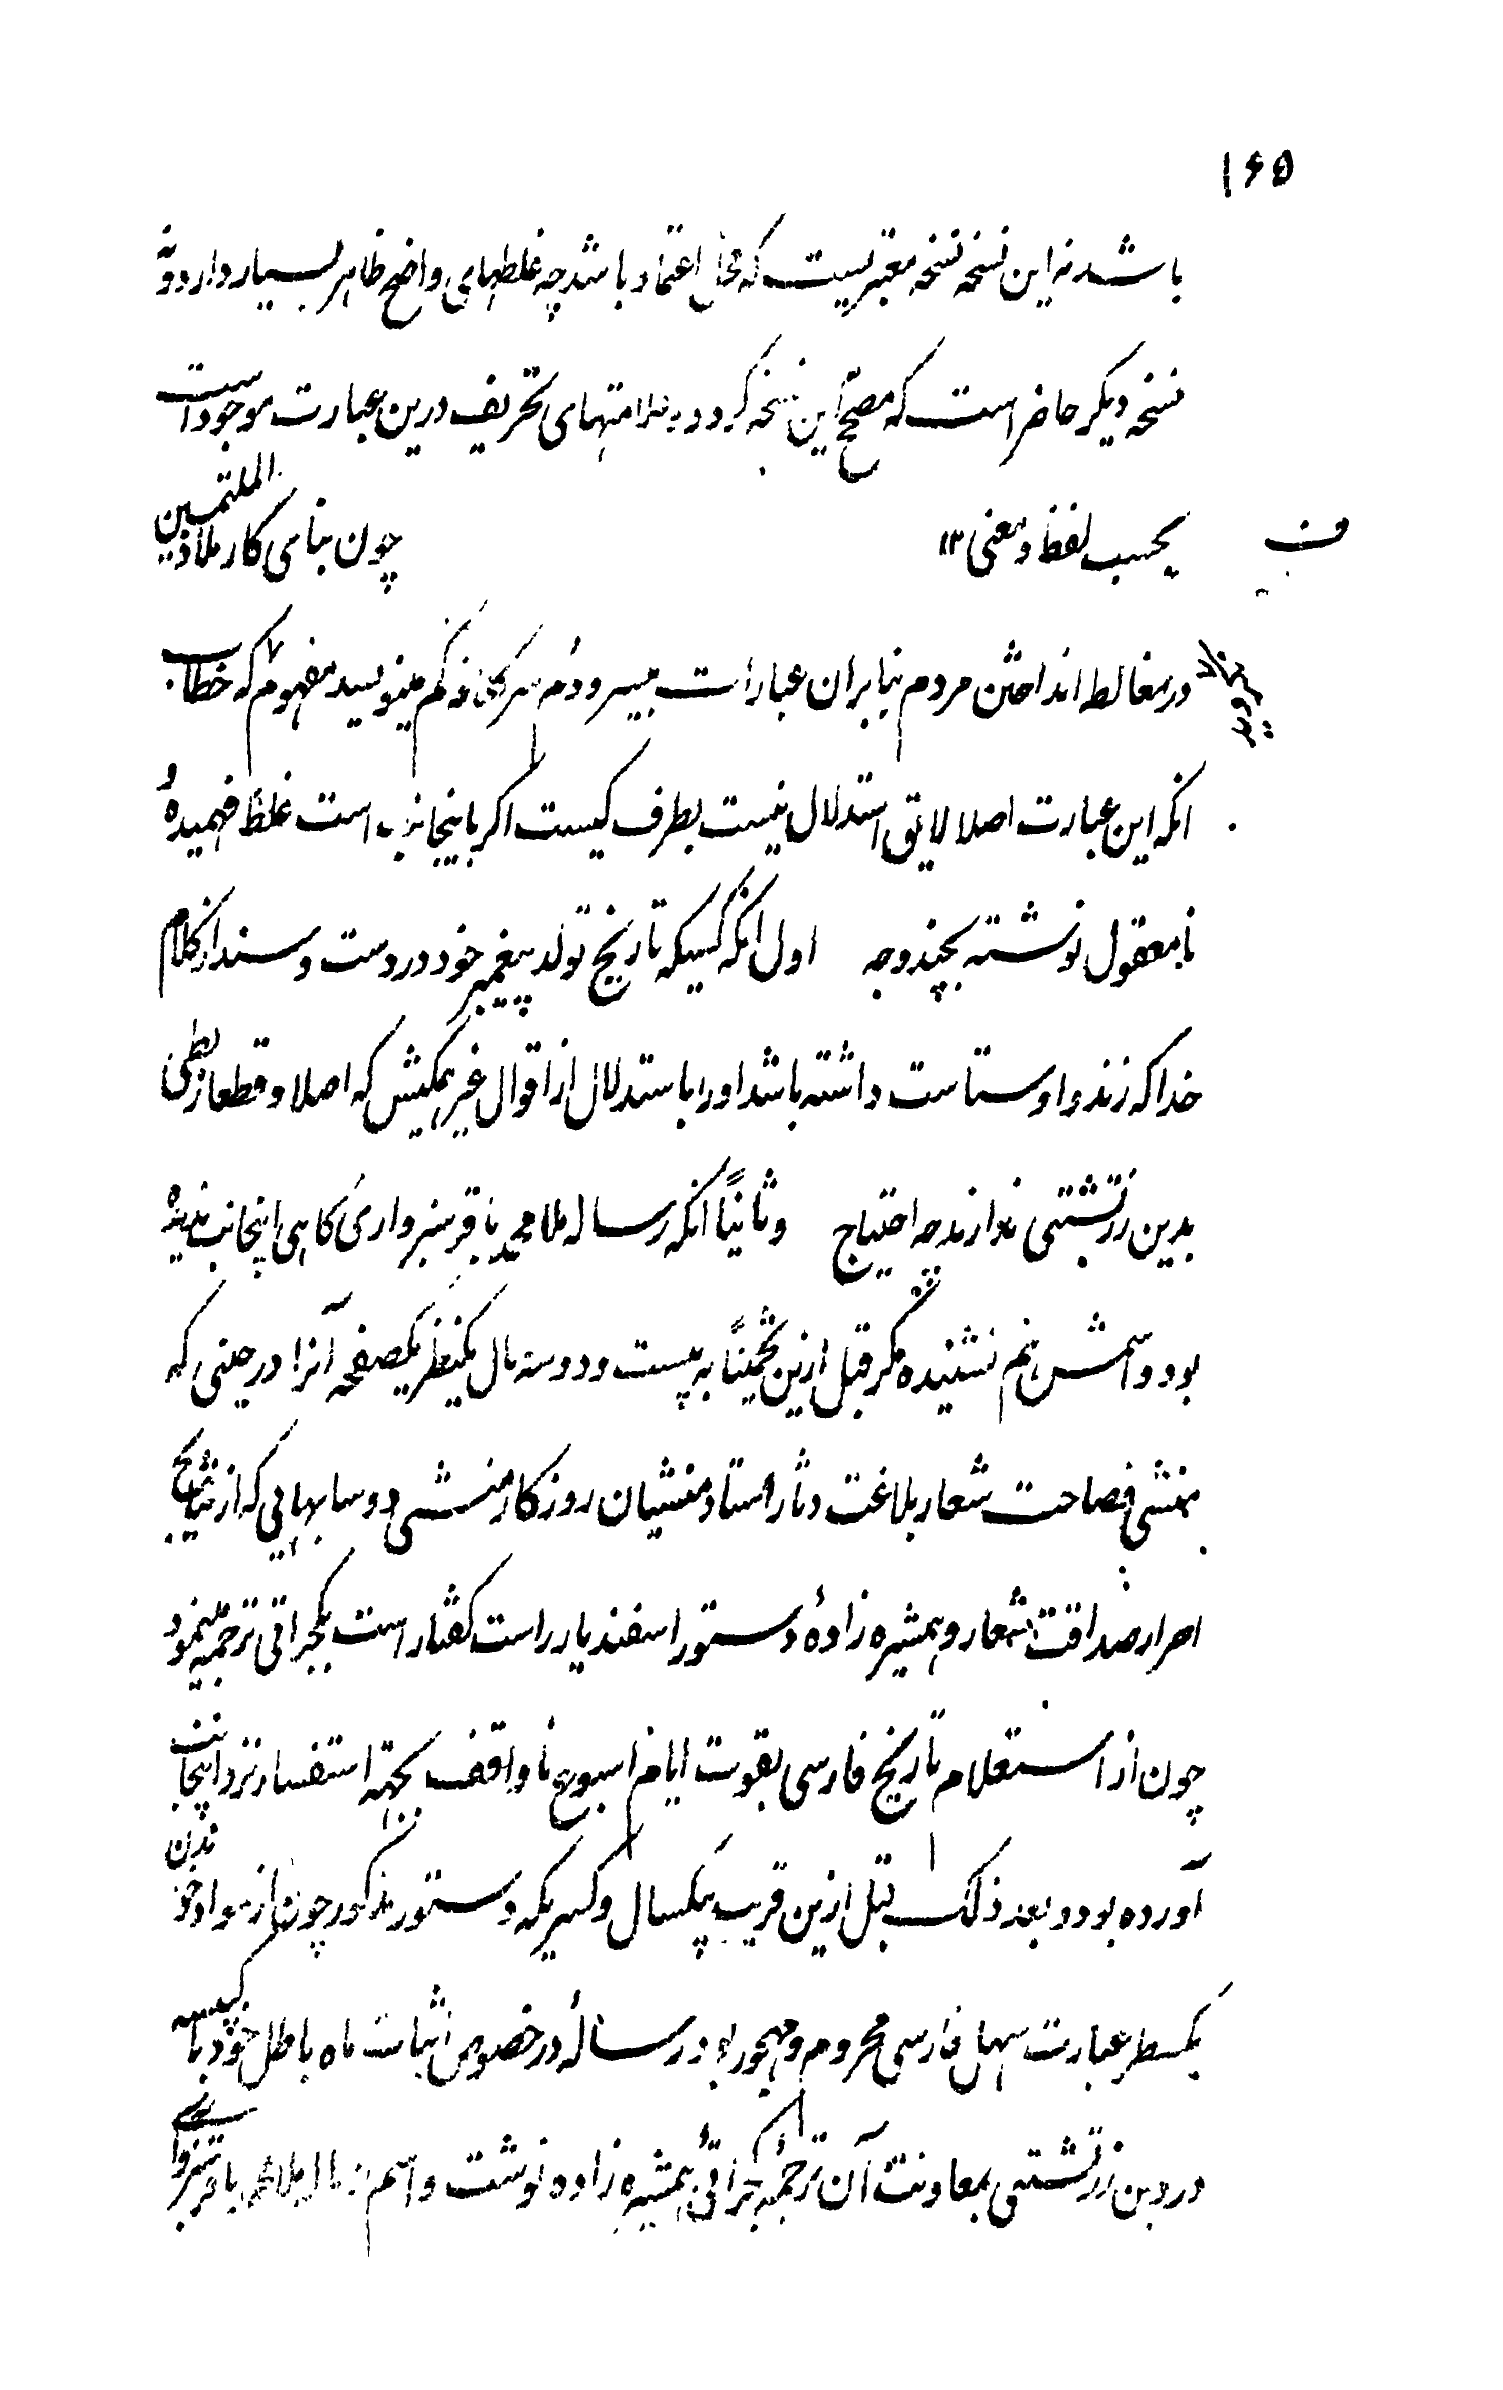 ۱۶۵
باشد نه این نسخه نسخه معتبریست که محل اعتماد باشد چه غلطهای واضح ظاهر بسیار دارد و نه
نسخه دیگر حاضر است که مصحح این نسخه گردد و علامتهای تحریف درین عبارت موجود است
بحسب لفظ و معنی ۱۲ چون بنای کار ملاذ الملتمسین
در مغالطه انداختن مردم بنابران عبارات میسرود مفهوم که خطاب
انکه این عبارت اصلا لایق استدلال نیست بطرف کیست اکر باینجانب است غلط فهمیده و
نامعقول نوشته بچند وجه اول انکه کسیکه تاریخ تولد پیغمبر خود در دست و سند از کلام
خدا که زند و اوستاست داشته باشد او را باستدلال از اقوال غیر همکیش که اصلا و قطعا ربطی
بدین زرتشتی ندارند چه احتیاج و ثانیًا انکه رساله ملا محمد باقر سبزواری کاهی اینجانب ندیده
بود و اسمش هم نشنیده مکر قبل ازین تخمینًا به بیست و دو سه سال یکنظر یکصفحه آنرا در حینی که
منشی فصاحت شعار بلاغت دثار استاد منشیان روزکار منشی دوسابهایی که از نتایج
احرار صداقت شعار و همشیره زادهٔ دستور اسفندیار راست کفتار است بکجراتی ترجمه مینمود
چون از استعلام تاریخ فارسی بقوت ایام اسبوع ناواقف بجهته استفسار نزد اینجانب
آورده بود و بعد ذلک قبل ازین قریب یکسال و کسری که دستور مذکور چون از سواد خواندن
یکسطر عبارت سهل فارسی محروم و مهجور بود رسالهٔ در خصوص اثبات ماه باطل خود با کبیسه
در دین زرتشتی بمعاونت آن ترجمهٔ کجراتی همشیره زاده نوشت و اسم رساله ملا محمد باقر سبزواری